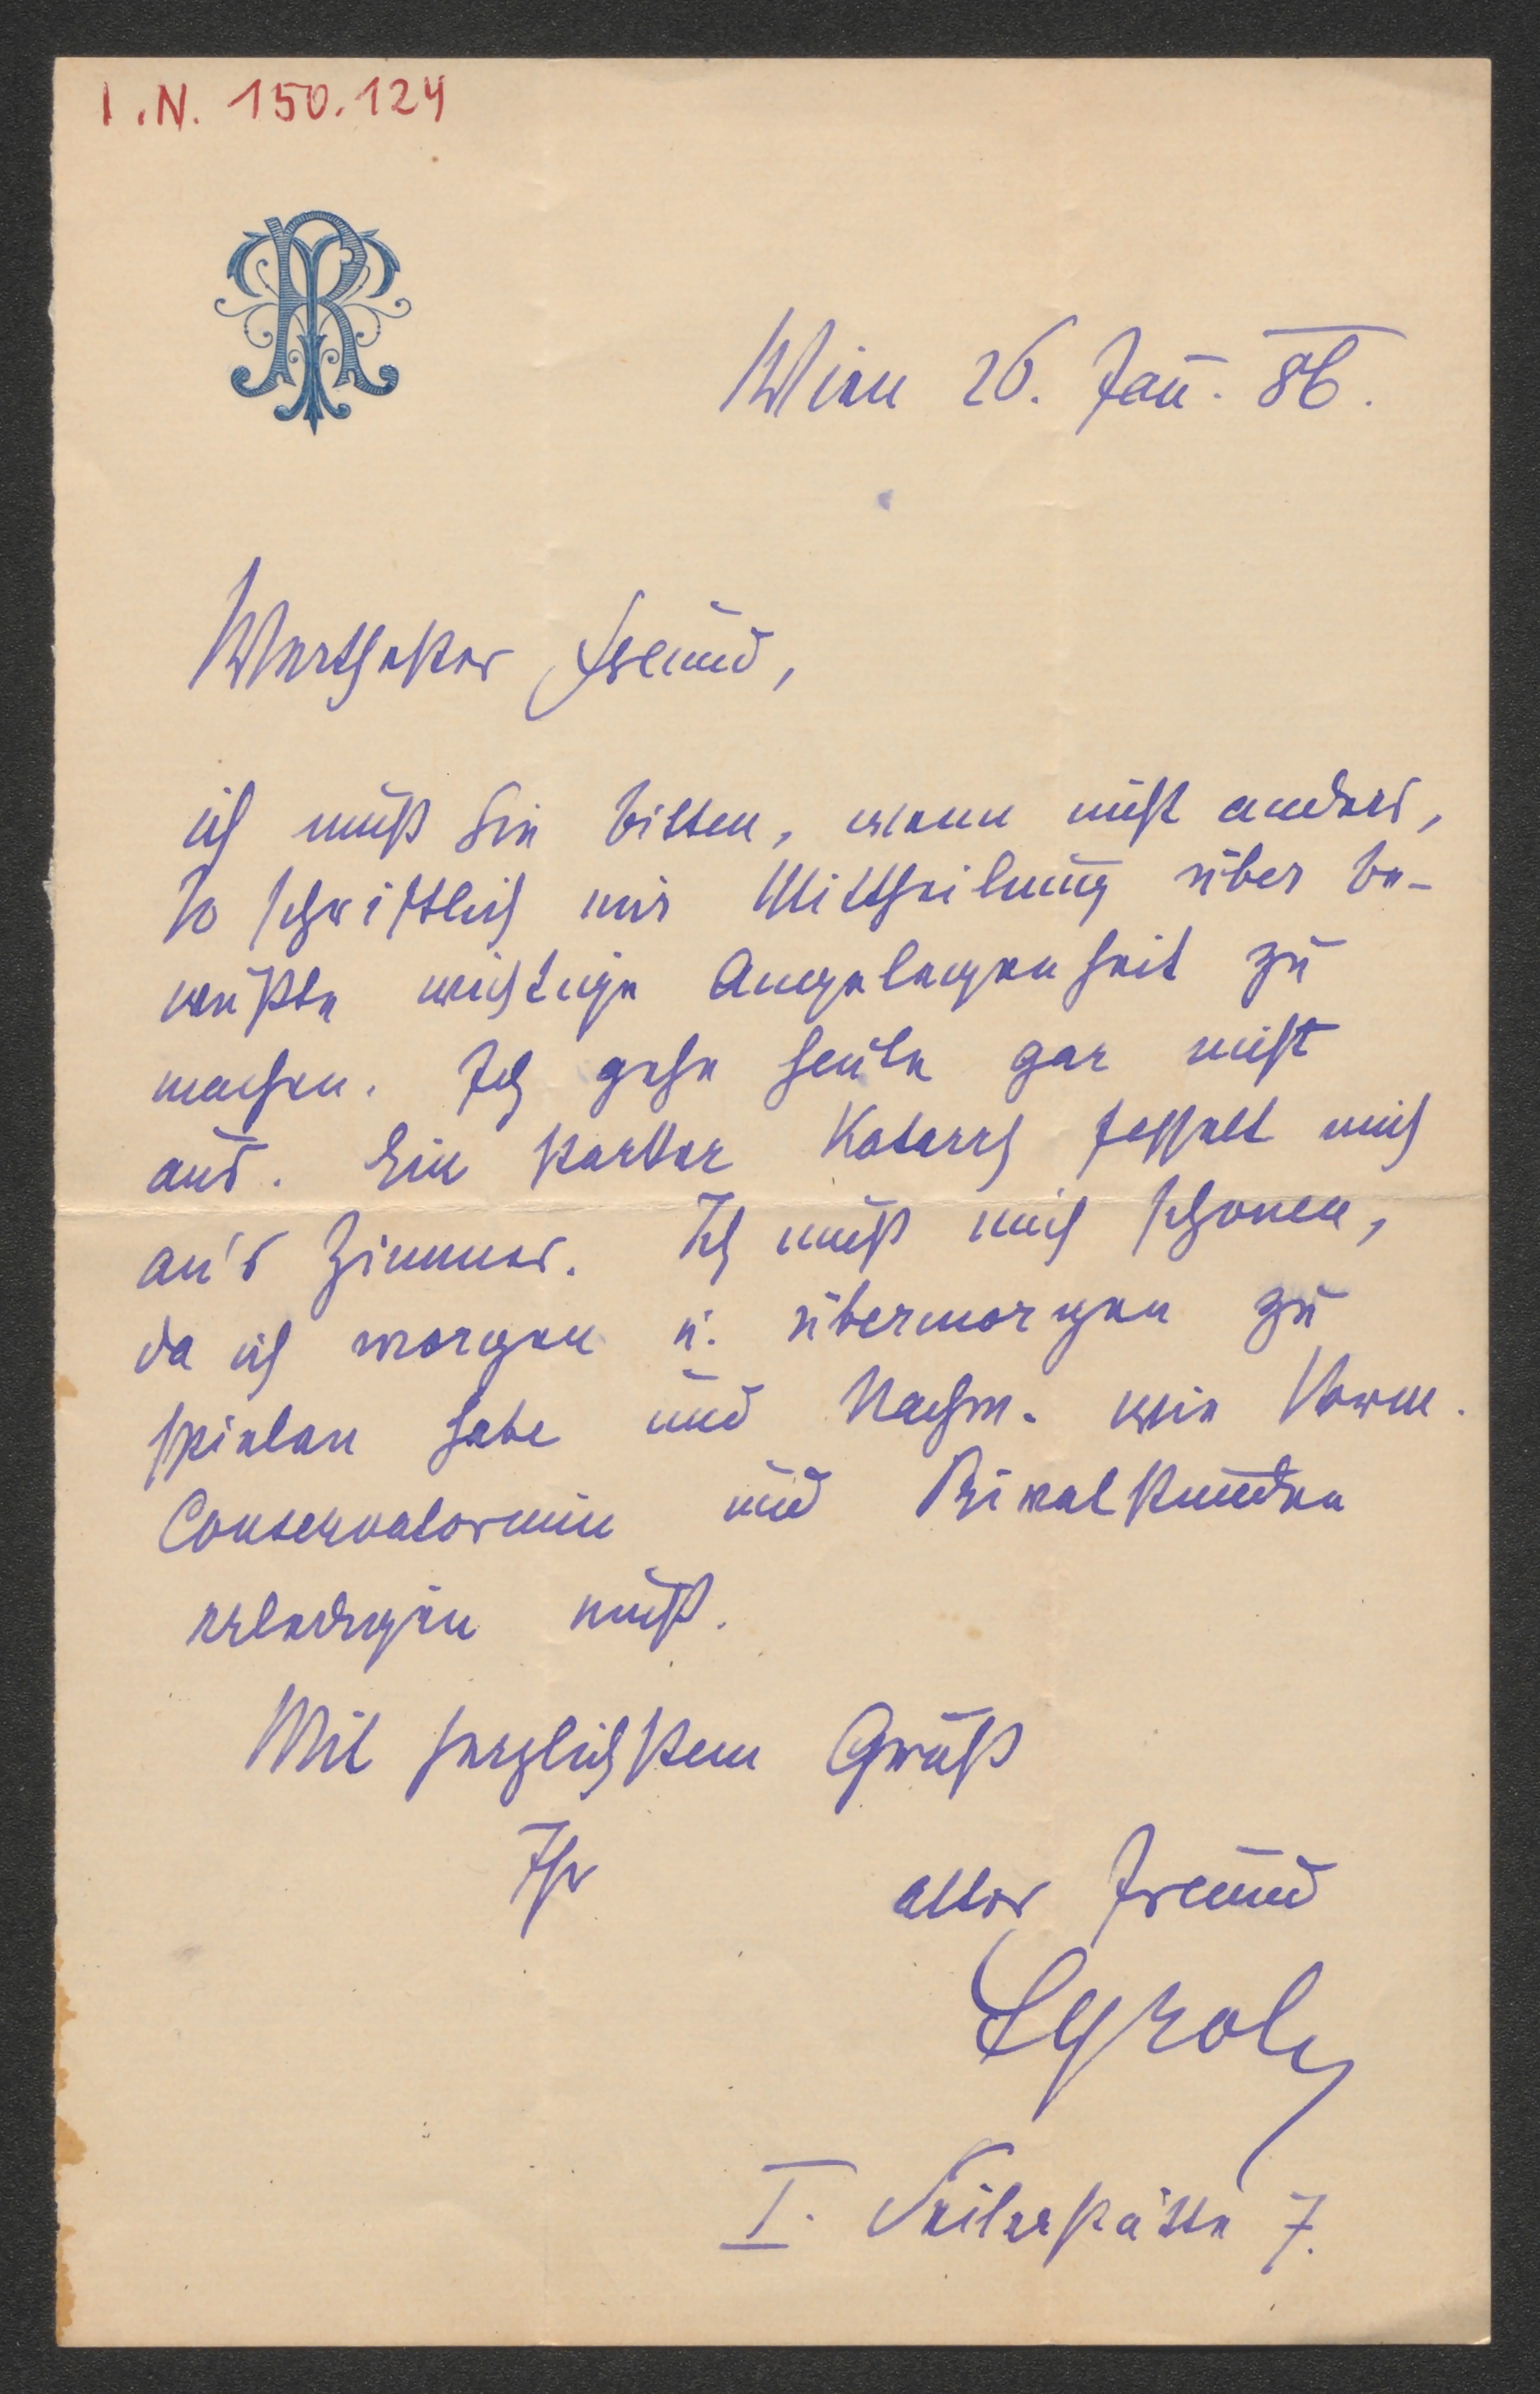 I.N. 150.124
Wien 26. Jan. 86.
Werthester Freund,
ich muß Sie bitten, wenn nicht anders,
so schriftlich mir Mittheilung über be-
wußte wichtige Angelegenheit zu
machen. Ich gehe heute gar nicht
aus. Ein starker Katarrh fesselt mich
an's Zimmer. Ich muß mich schonen,
da ich morgen u. übermorgen zu
spielen habe und Nachm. wie Vorm.
Conservatorium und Privatstunden
erledigen muß.
Mit herzlichstem Gruß
Ihr
alter Freund
I. Seilerstätte 7.